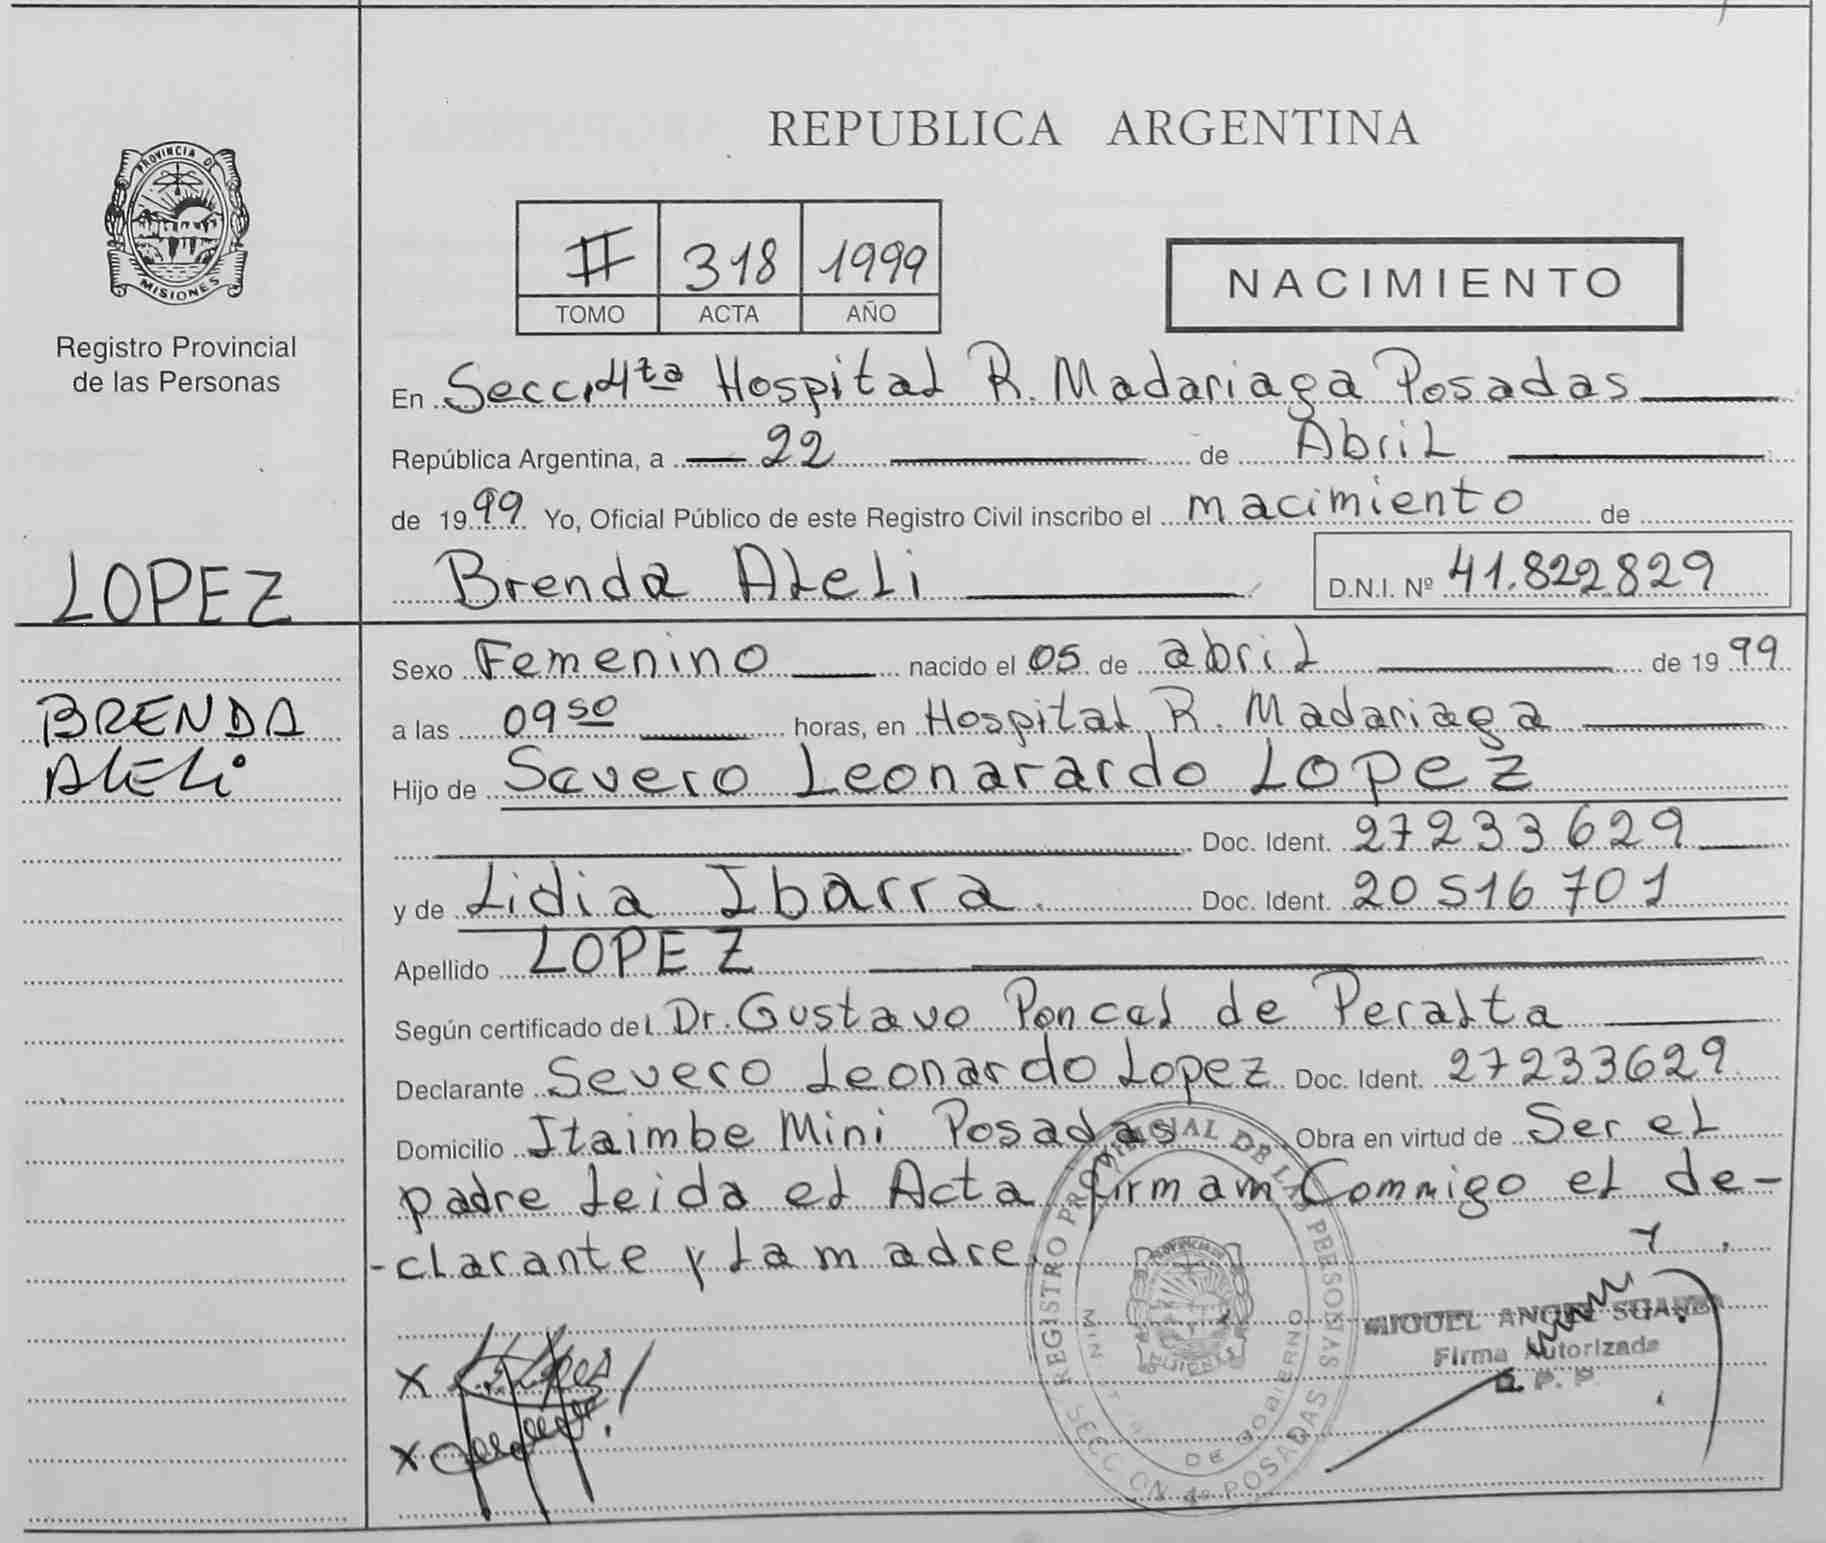 REPUBLICA ARGENTINA
PROVINCIA DE
MISIONES
Registro Provincial
de las Personas
II 318 1999
TOMO ACTA AÑO
NACIMIENTO
En Secc. 4ta Hospital R. Madariaga Posadas
República Argentina, a 22 de Abril
de 1999 Yo, Oficial Público de este Registro Civil inscribo el nacimiento de
LOPEZ
Brenda Aleli D.N.I. Nº 41.822829
Sexo Femenino nacido el 05 de abril de 1999
BRENDA
ALELi
a las 09 50 horas, en Hospital R. Madariaga
Hijo de Severo Leonarardo Lopez
Doc. Ident. 27233629
y de Lidia Ibarra Doc. Ident. 20516701
Apellido LOPEZ
Según certificado del Dr. Gustavo Poncel de Peralta
Declarante Severo Leonardo Lopez Doc. Ident. 27233629
Domicilio Itaimbe Mini Posadas Obra en virtud de Ser el
padre leida el Acta firman Conmigo el de-
-clarante y la madre.
REGISTRO PROVINCIAL DE LAS PERSONAS
DE GOBIERNO
POSADAS
MIGUEL ANGEL
Firma Autorizada
X
X